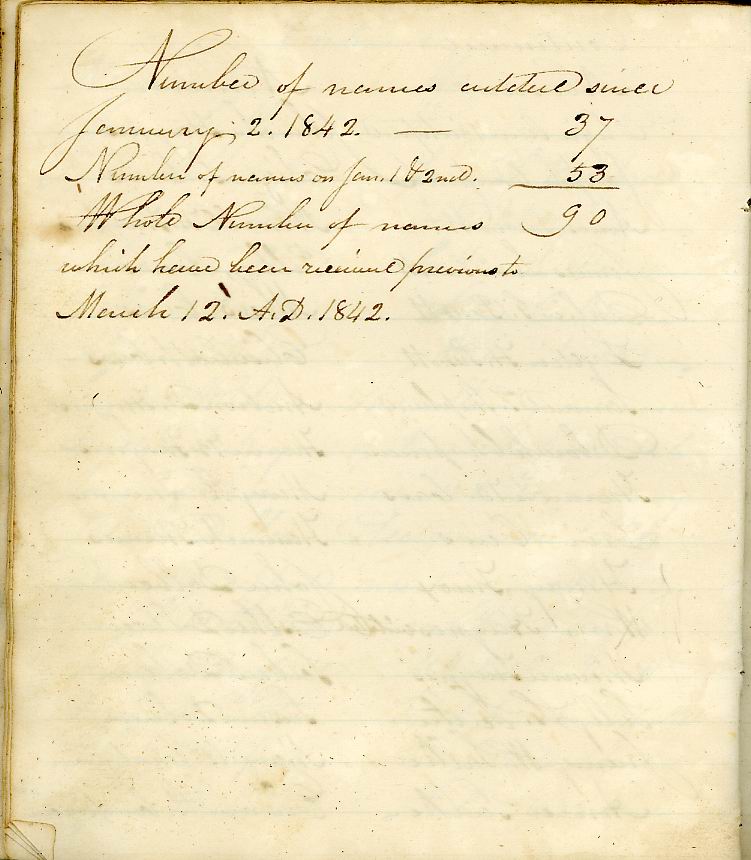 Number of names entered since
January 2. 1842. — 37
Number of names on Jan. 1 & 2nd. 53
Whole Number of names 90
which have been received previous to
March 12. A.D. 1842.